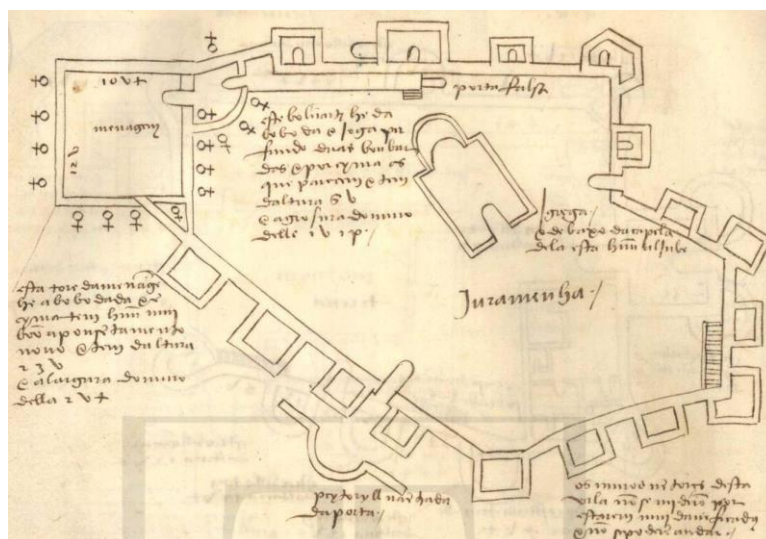 10 v +
menagem
12 v
porta falsa
este baluarte he da
bobada e joga por
fundo duas bombar
das e per cyma as
que parecem e tem
daltura 6 v
e a grosura do muro
delle 1 v 1 p /
Igreja
e debaxo da capela
dela esta hũu aljube
Juramenha /
esta tore da menagẽ
he abobadada e ẽ
cyma tem hũu mui
bõo aponsẽtamento
novo e tem daltura
23 v
e a largura do muro
della 2 v +
peytoryll na ẽtrada
da porta /
os muros nẽ tores desta
vila nõ se midirõ por
estarem mui danificadas
e nõ se poder andar /